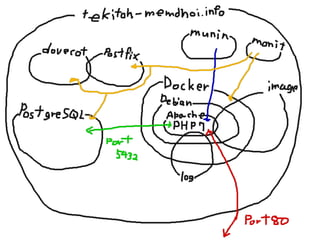 tekitoh-memdhoi.info
munin
monit
dovecot
Postfix
Docker
image
Debian
Apache
PHP
PostgreSQL
Port
5432
log
Port80